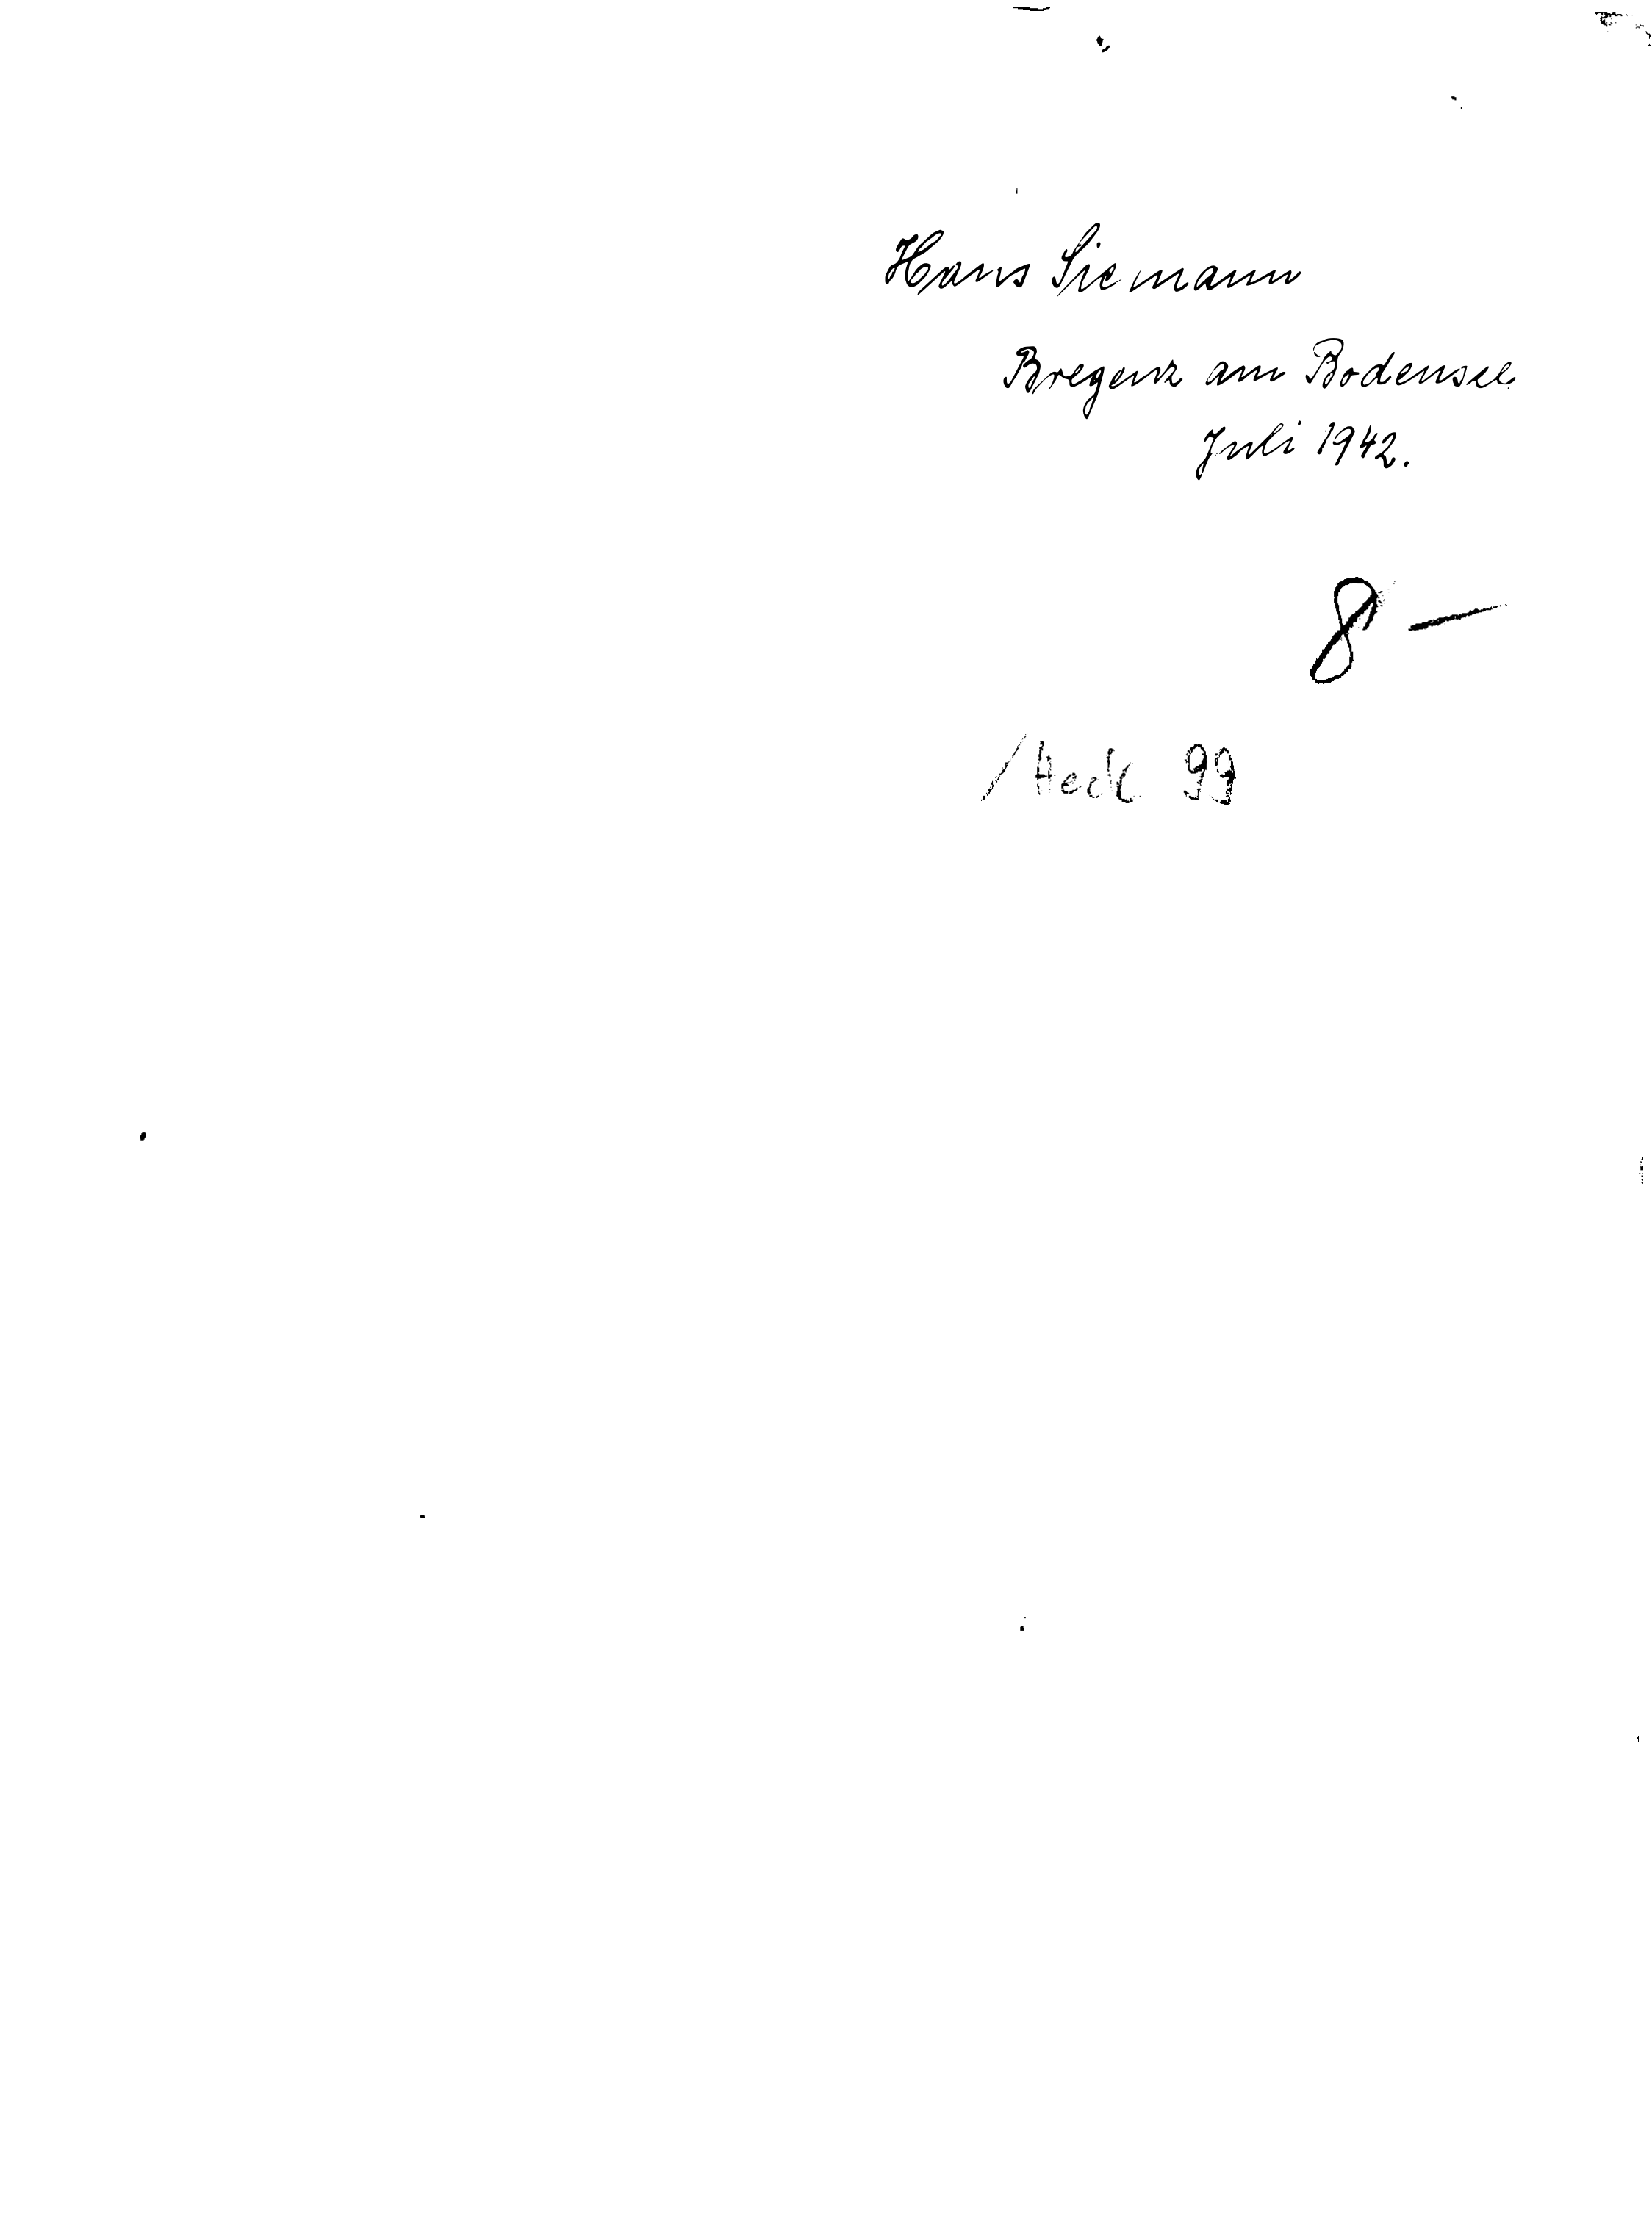 Hans Siemann
Bregenz am Bodensee
Juli 1942.
8 —
/Heck 99